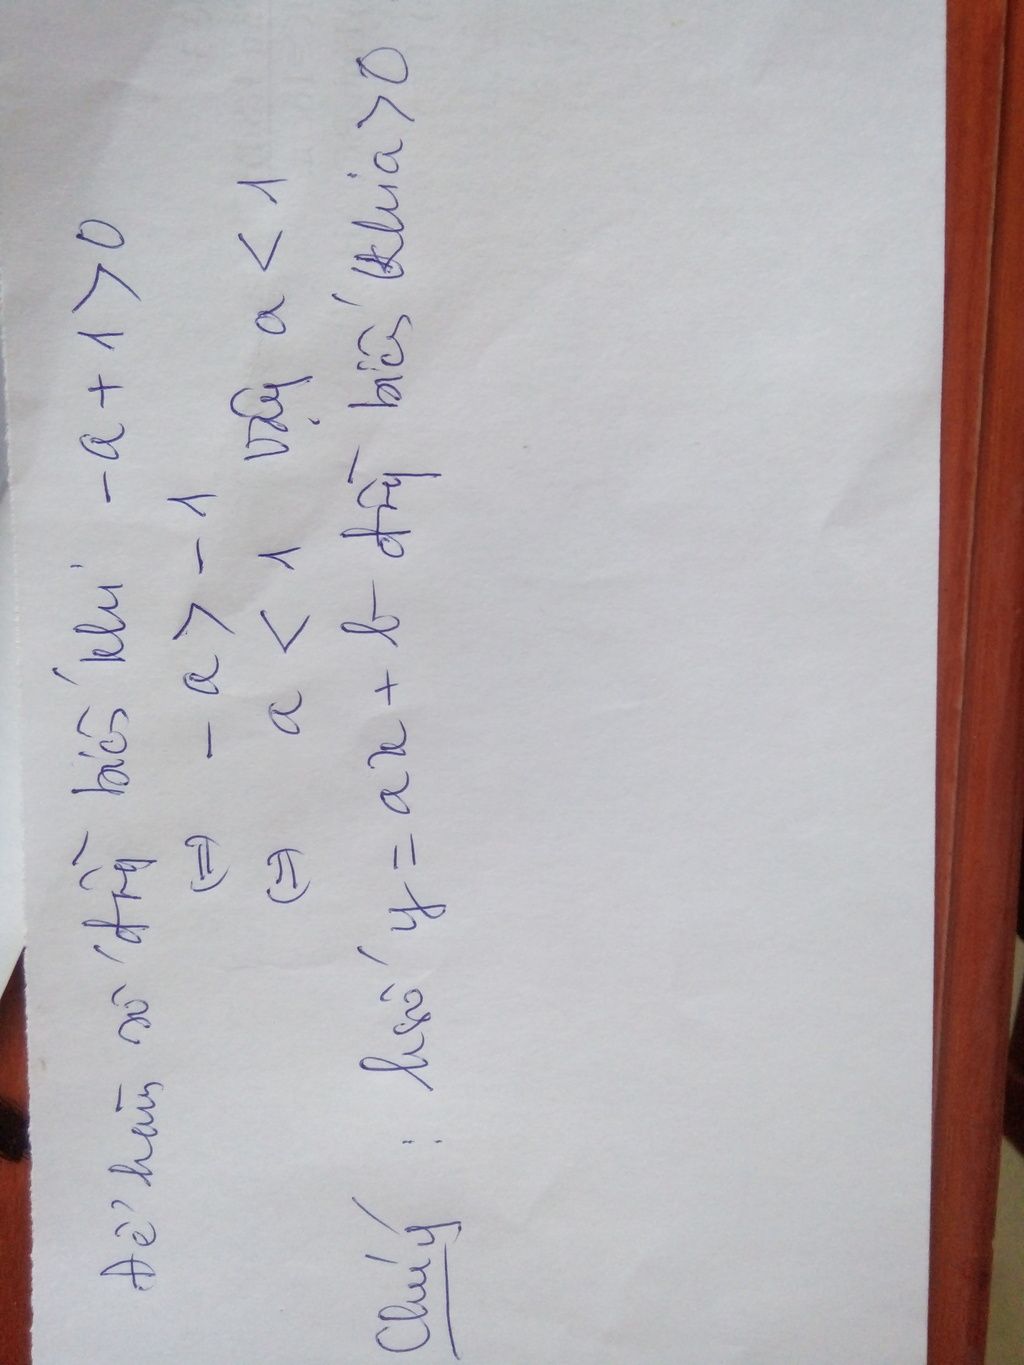 Để hàm số đồng biến khi -a + 1 > 0
(=) -a > -1
(=) a < 1 vậy a < 1
Chú ý : hsố y = ax + b đồng biến khi a > 0